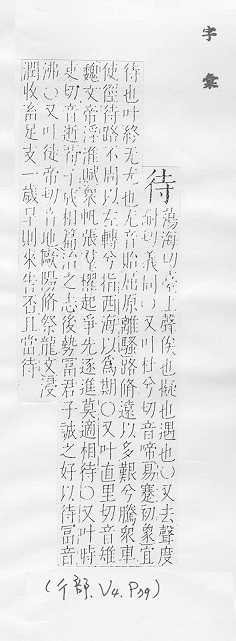 字彙
待
蕩海切臺上聲俟也擬也遇也〇又去聲度
耐切義同〇又叶杜兮切音啼易蹇初象宜
待也叶終无尤也尤音怡屈原離騷路脩遠以多艱兮騰衆車
使徑待路不周以左轉兮指西海以爲期〇又叶直里切音雉
魏文帝浮淮賦衆帆張羣櫂起爭先逐進莫適相待〇又叶時
吏切音逝荀子成相篇治之志後勢富君子誠之好以待富音
沸〇又叶徒 切音地歐陽脩祭龍文浸
潤收畜足支一歲 則來告否且當待
(彳部. V4. P39)